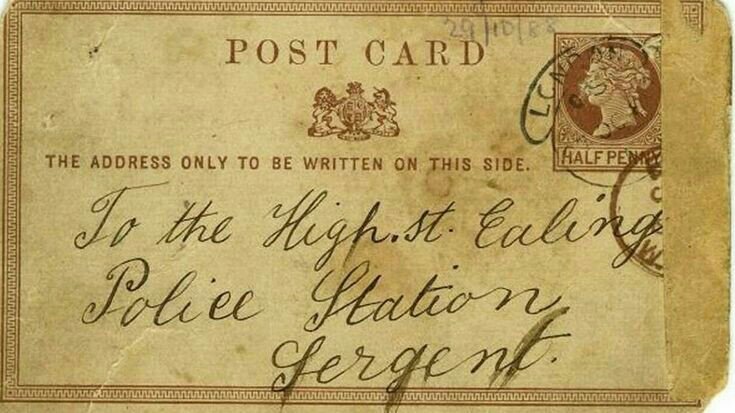 29/10/88
POST CARD
LONDON
HALF PENNY
THE ADDRESS ONLY TO BE WRITTEN ON THIS SIDE.
To the High.st. Ealing
Police Station
Sergent.